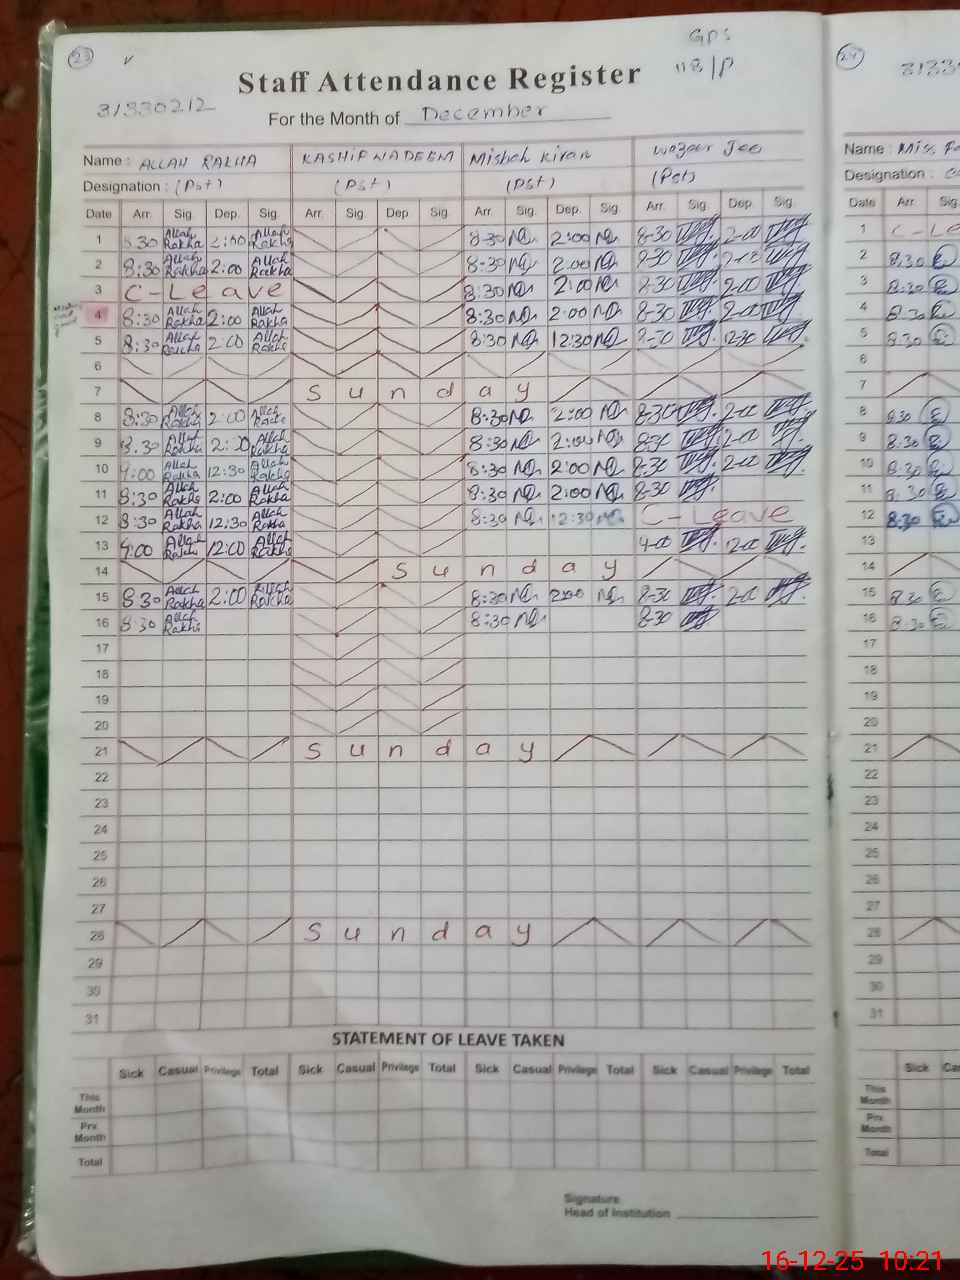 23
GPS
118/P
Staff Attendance Register
31330212
For the Month of December
Name : ALLAH RAKHA KASHIF NADEEM Misbah Kiran
Designation : (Pst) (Pst) (Pst) (Pst)
Date Arr. Sig. Dep. Sig. Arr. Sig. Dep Sig. Arr. Sig. Dep. Sig. Arr. Sig. Dep. Sig.
1 8:30 Allah Rakha 2:00 Allah Rakha 8-30 2:00 8-30 2-00
2 8:30 Allah Rakha 2:00 Allah Rakha 8-30 2:00 8-30
3 C-Leave 8:30 2:00 8-30 2-00
4 8:30 Allah Rakha 2:00 Allah Rakha 8:30 2:00 8-30 2-00
5 8:30 Allah Rakha 2:00 Allah Rakha 8:30 12:30 12-30
6
7 Sunday
8 8:30 Allah 2:00 Allah 8:30 2:00 8-30 2-00
9 8:30 Allah Rakha Allah Rakha 8:30 2:00 8-30 2-00
10 9:00 Allah Rakha 12:30 Allah Rakha 8:30 2:00 8-30 2-00
11 8:30 Allah Rakha 2:00 Allah Rakha 8:30 2:00 8-30
12 8:30 Allah Rakha 12:30 Allah Rakha 8:30 12:30 C-Leave
13 9:00 Allah 12:00 Allah Rakha 2-00
14 Sunday
15 8:30 Allah Rakha 2:00 Allah Rakha 8:30 2:00 8-30 2-00
16 8:30 Allah Rakha 8:30 8-30
17
18
19
20
21 Sunday
22
23
24
25
26
27
28 Sunday
29
30
31
STATEMENT OF LEAVE TAKEN
Sick Casual Privilege Total Sick Casual Privilege Total Sick Casual Privilege Total Sick Casual Privilege Total
This Month
Prv Month
Total
Signature
Head of Institution
24
Name : Miss
Designation :
Date Arr. Sig
1 C-Le
2 8:30
3 8:30
4 8:30
5 8:30
6
7
8 8:30
9 8:30
10 8:30
11 8:30
12 8:30
13
14
15 8:30
16 8:30
17
18
19
20
21
22
23
24
25
26
27
28
29
30
31
Sick
This Month
Prv Month
Total
16-12-25 10:21